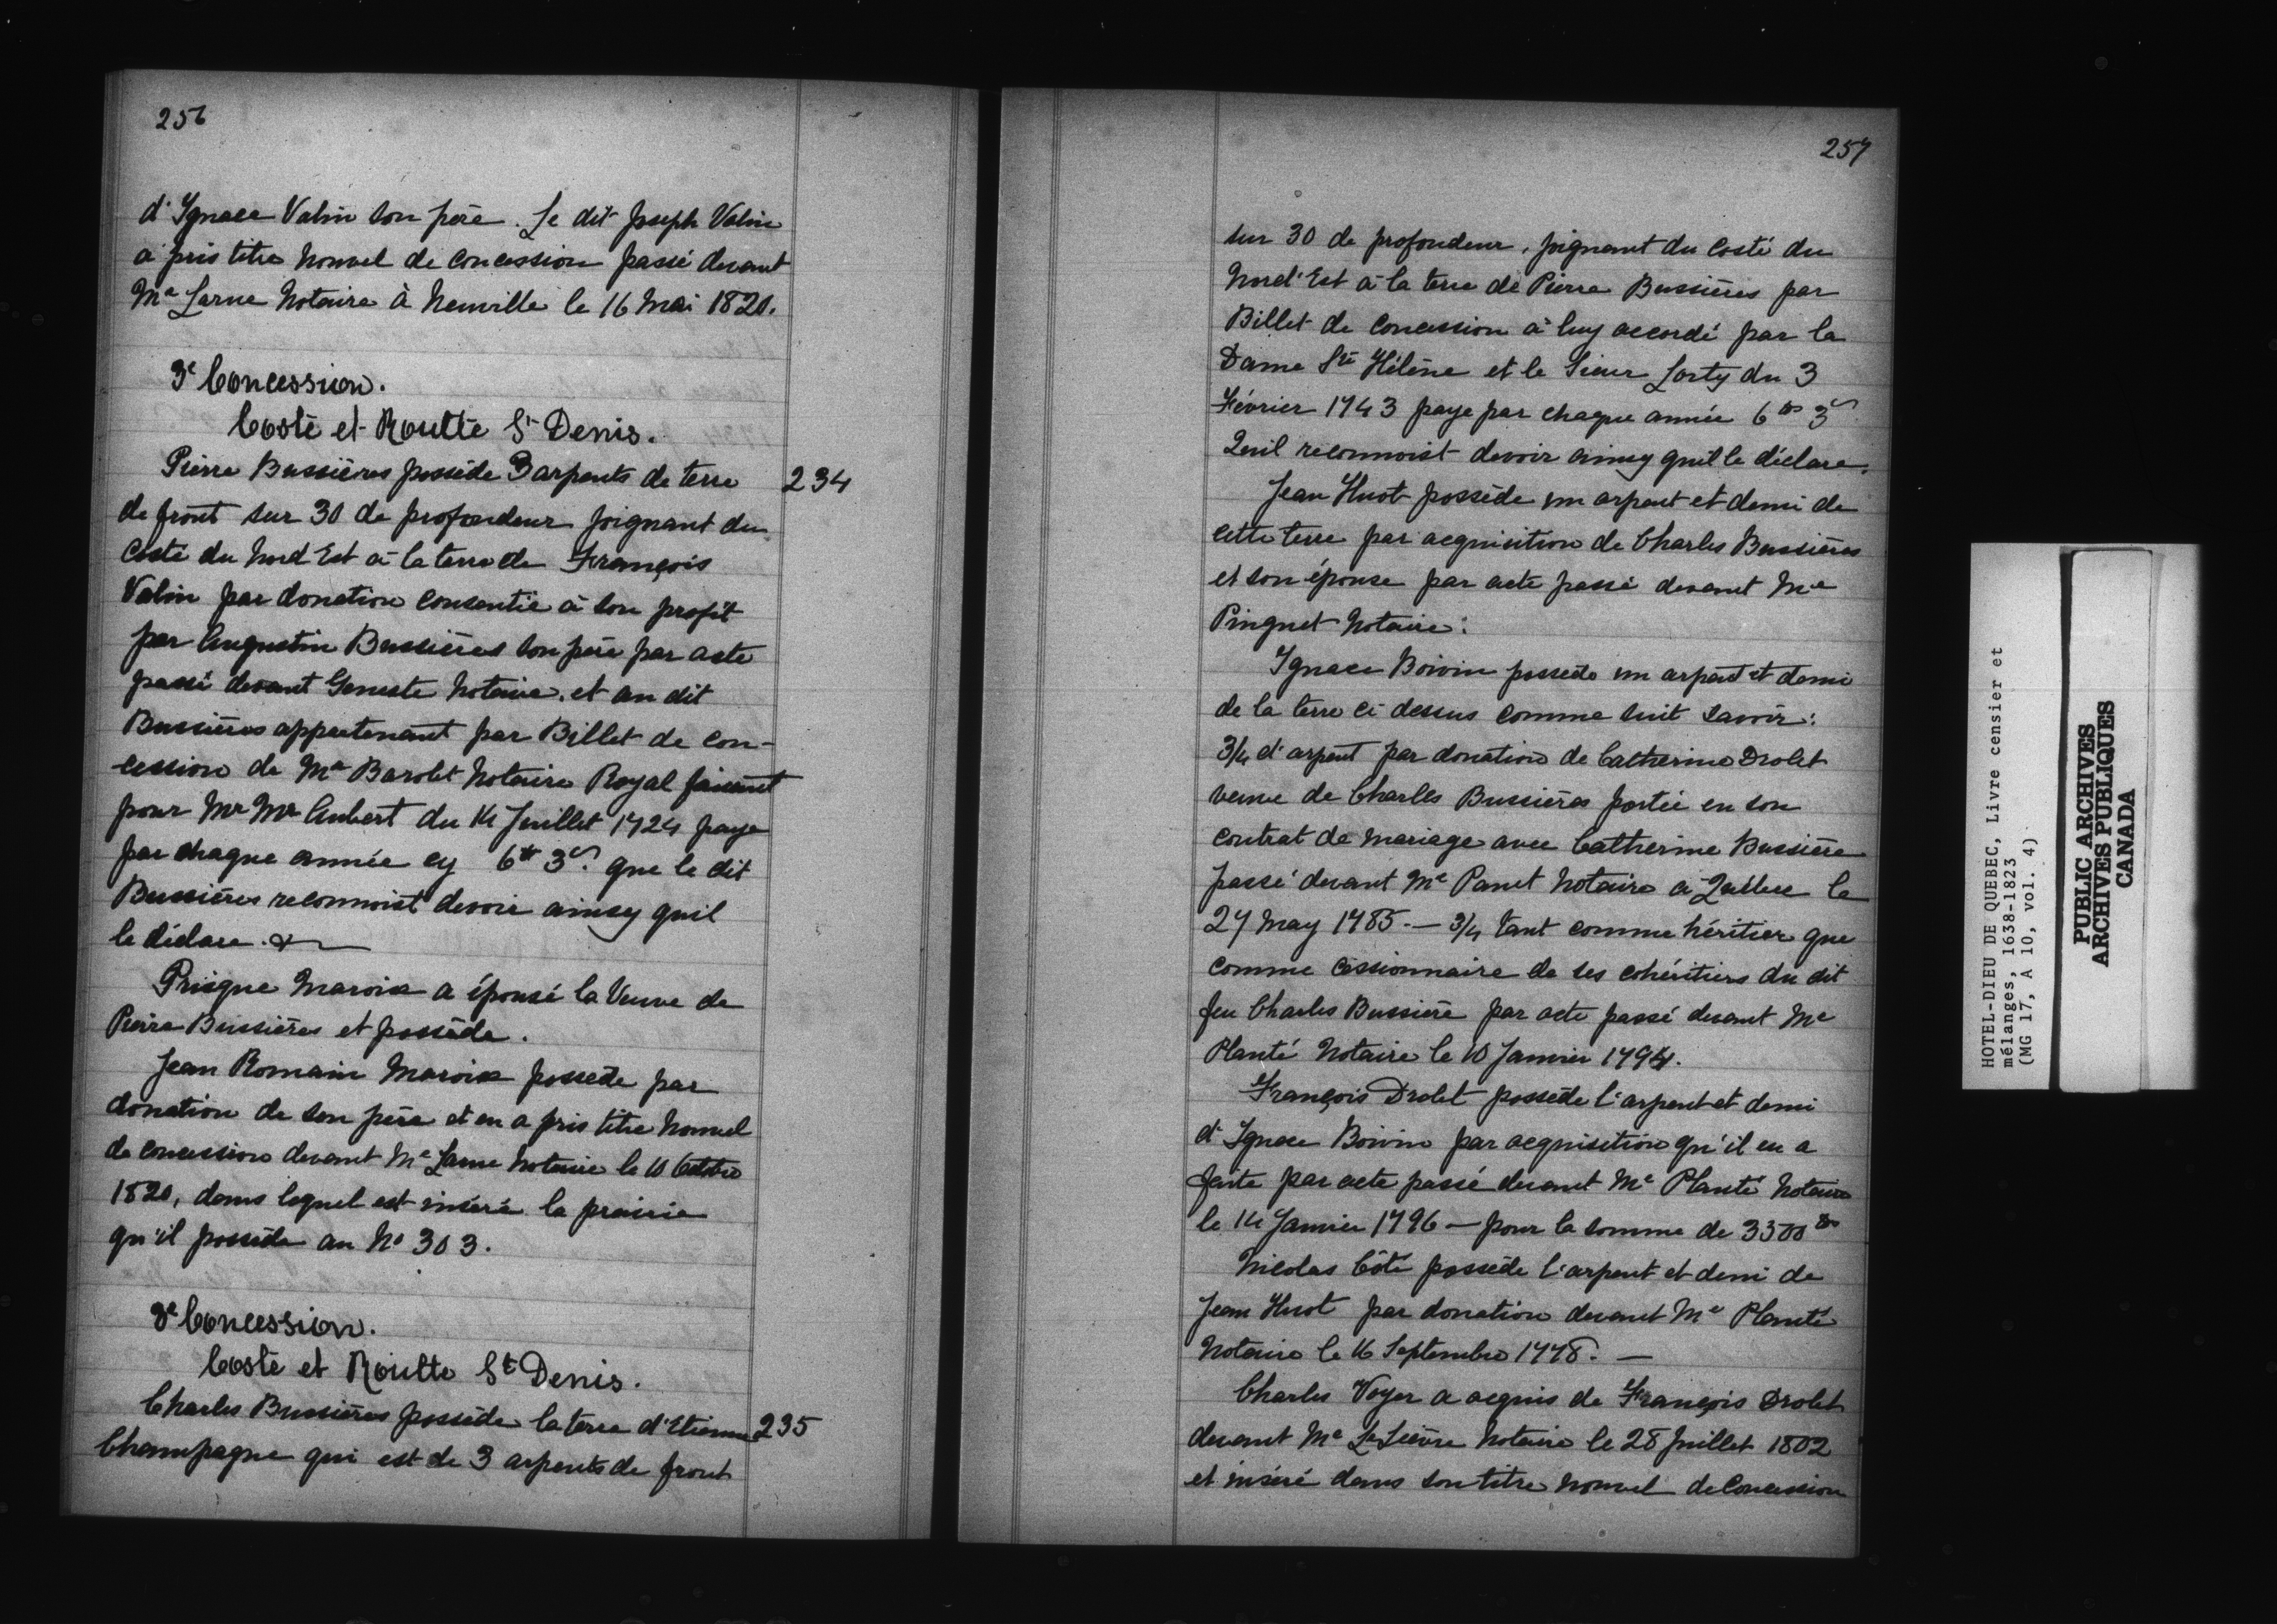 256
d'Ignace Valin son père. Le dit Joseph Valin
a pris titre nouvel de concession passé devant
Me Larue Notaire à Neuville le 16 Mai 1820.
3e Concession.
Costé et Routte St Denis.
Pierre Bussières possède 3 arpents de terre 234
de front sur 30 de profondeur joignant du
costé du Nord Est à la terre de François
Valin par donation consentie à son profit
par Augustin Bussières son père par acte
passé devant Geneste Notaire. et au dit
Bussières appartenant par Billet de con-
cession de Me Barolet Notaire Royal faisant
pour Mr Me Aubert du 14 Juillet 1724 paye
par chaque année cy 6tt 3s. que le dit
Bussières reconnoist devoir ainsy quil
le déclare.
Prisque Marois a épousé la Veuve de
Pierre Bussières et possède.
Jean Romain Marois possede par
donation de son père et en a pris titre nouvel
de concession devant Me Larue Notaire le 10 Octobre
1820, dans lequel est inséré la prairie
qu'il possède au No 303.
3e Concession.
Costé et Routte St Denis.
Charles Bussières possède la terre d'Etienne 235
Champagne qui est de 3 arpents de front
257
sur 30 de profondeur, joignant du costé du
Nord'Est à la terre de Pierre Bussières par
Billet de concession à luy accordé par la
Dame Ste Hélène et le Sieur Lorty du 3
Février 1743 paye par chaque année 6tt 3s
Quil reconnoist devoir ainsy quil le déclare.
Jean Huot possède un arpent et demi de
cette terre par acquisition de Charles Bussières
et son épouse par acte passé devant Me
Pinguet Notaire:
Ignace Boivin possede un arpent et demi
de la terre ci dessus comme suit savoir:
3/4 d'arpent par donation de Catherine Drolet
veuve de Charles Bussières portée en son
contrat de mariage avec Catherine Bussière
passé devant Me Panet Notaire à Québec le
27 May 1785. — 3/4 tant comme héritier que
comme cessionnaire de ses cohéritiers du dit
feu Charles Bussière par acte passé devant Me
Planté Notaire le 10 Janvier 1794.
François Drolet possède l'arpent et demi
d'Ignace Boivin par acquisition qu'il en a
faite par acte passé devant Me Planté Notaire
le 14 Janvier 1796 — pour la somme de 3300tt
Nicolas Côté possède l'arpent et demi de
Jean Huot par donation devant Me Planté
Notaire le 16 Septembre 1778. —
Charles Voyer a acquis de François Drolet
devant Me LeLièvre Notaire le 28 Juillet 1802
et inséré dans son titre nouvel de Concession
HOTEL-DIEU DE QUEBEC, Livre censier et
mélanges, 1638-1823
(MG 17, A 10, vol. 4)
PUBLIC ARCHIVES
ARCHIVES PUBLIQUES
CANADA